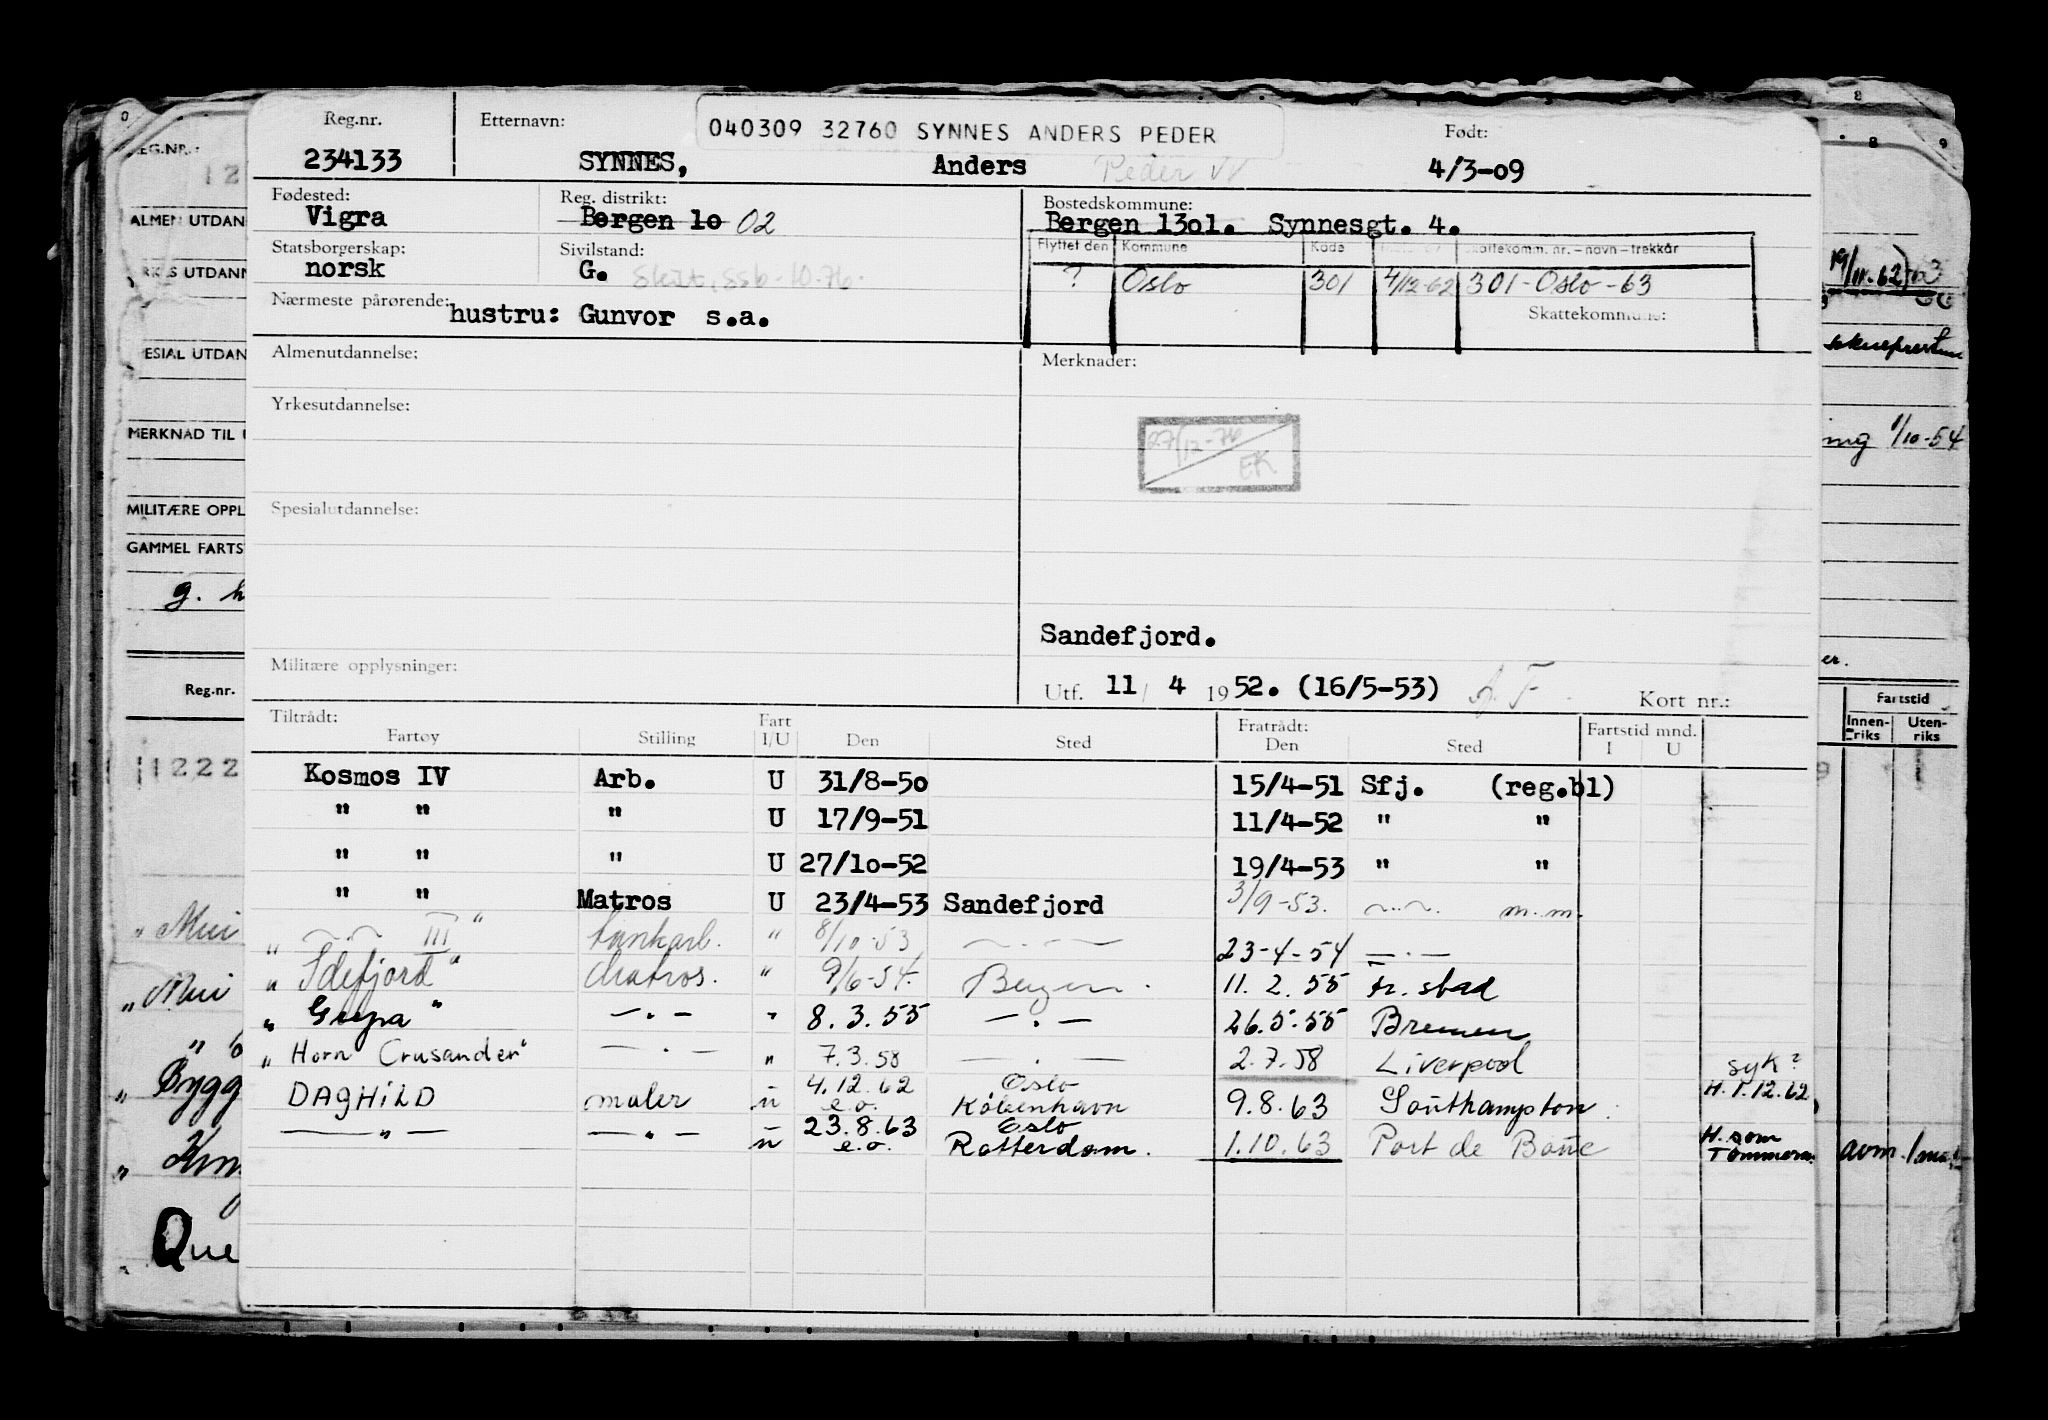 Reg.nr. Etternavn: 040309 32760 SYNNES ANDERS PEDER Født:
234133 SYNNES, Anders Peder 4/3-09
Fødested: Reg. distrikt: Bostedskommune:
Vigra Bergen 1o 02 Bergen 13o1. Synnesgt. 4.
Statsborgerskap: Sivilstand: Flyttet den Kommune Kode Skattekomm. nr. – navn – trekkår
norsk G. Skilt, ssb-10.76. ? Oslo 301 4/12-62 301-Oslo-63
Nærmeste pårørende: hustru: Gunvor s.a. Skattekommune:
Almenutdannelse: Merknader:
Yrkesutdannelse:
27/12-76
EK
Spesialutdannelse:
Sandefjord.
Militære opplysninger: Utf. 11/ 4 1952. (16/5-53) Kort nr.:
Tiltrådt: Fart Fratrådt: Fartstid mnd.
Fartøy Stilling I/U Den Sted Den Sted I U
Kosmos IV Arb. U 31/8-50 15/4-51 Sfj. (reg.bl)
" " " U 17/9-51 11/4-52 " "
" " " U 27/1o-52 19/4-53 " "
" " Matros U 23/4-53 Sandefjord 3/9-53. —..— m.m.
" —..— III " tankarb. " 8/10-53 —.— 23-4-54 —.—
" Idefjord " Matros. " 9/6-54. Bergen. 11.2.55 Fr.stad
" Grepa " —.— " 8.3.55 —.— 26.5.55 Bremen
" Horn Crusander" —.— " 7.3.58 —.— 2.7.58 Liverpool syk?
DAGHILD maler ü 4.12.62 Oslo 9.8.63 Southampton H.1.12.62
e.o. København
—"— —.— ü 23.8.63 Oslo 1.10.63 Port de Bouc H. som
e.o. Rotterdam. Tømmerm.
REG.NR.:
ALMEN UTDAN
YRKES UTDANN
SPESIAL UTDAN
MERKNAD TIL U
MILITÆRE OPPL
GAMMEL FARTS
g. h
Reg.nr.
1222
" Mui
" Mui
" Bygg
" Kin
Que
19/11-62
ing 1/10-54
er.
Fartstid
Innen- Uten-
riks riks